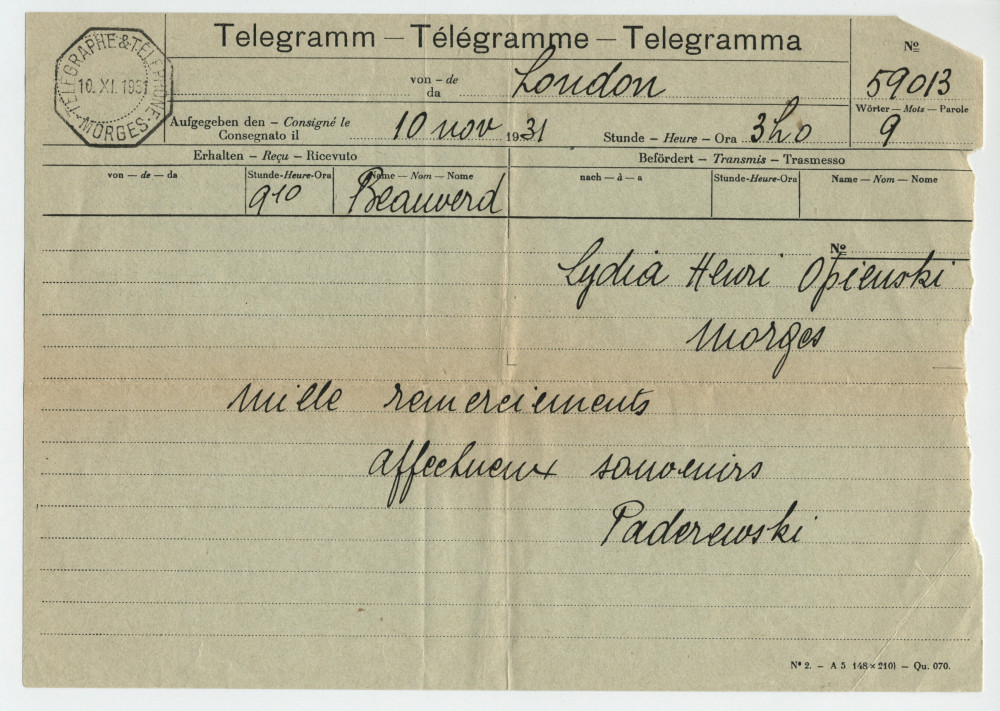 Telegramm – Télégramme – Telegramma
TELEGRAPHE & TÉLÉPHONE
10. XI. 1931
– MORGES –
von – de
da
London
Nº
59013
Wörter – Mots – Parole
9
Aufgegeben den – Consigné le
Consegnato il
10 nov 1931
Stunde – Heure – Ora 3h0
Erhalten – Reçu – Ricevuto
Befördert – Transmis – Trasmesso
von — de — da
Stunde-Heure-Ora
Name — Nom — Nome
nach — à — a
Stunde-Heure-Ora
Name — Nom — Nome
910
Beauverd
Nº
Lydia Henri Opienski
Morges
mille remerciements
affectueux souvenirs
Paderewski
Nº 2. – A 5 148×210) – Qu. 070.